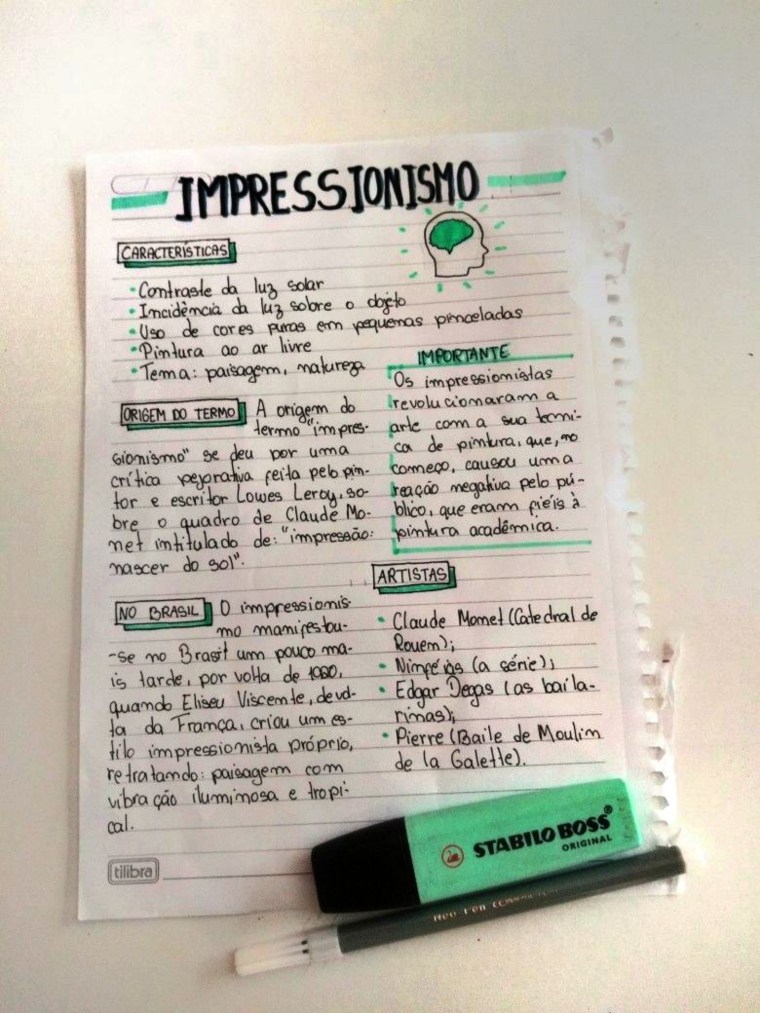 IMPRESSIONISMO
CARACTERÍSTICAS
• Contraste da luz solar
• Incidência da luz sobre o objeto
• Uso de cores puras em pequenas pinceladas
• Pintura ao ar livre
• Tema: paisagem, natureza
ORIGEM DO TERMO A origem do
termo "impres-
sionismo" se deu por uma
crítica pejorativa feita pelo pin-
tor e escritor Lowes Leroy, so-
bre o quadro de Claude Mo-
net intitulado de: "impressão:
nascer do sol".
IMPORTANTE
Os impressionistas
revolucionaram a
arte com a sua técni-
ca de pintura, que, no
começo, causou uma
reação negativa pelo pú-
blico, que eram fiéis à
pintura acadêmica.
NO BRASIL O impressionis
mo manifestou-
-se no Brasil um pouco ma-
is tarde, por volta de
quando Eliseu Viscente, de vol-
ta da França, criou um es-
tilo impressionista próprio,
retratando: paisagem com
vibração iluminosa e tropi-
cal.
ARTISTAS
• Claude Monet (Catedral de
Rouem);
• Ninféias (a série);
• Edgar Degas (as baila-
rinas);
• Pierre (Baile de Moulin
de la Galette).
tilibra
STABILO BOSS®
ORIGINAL
Neo-Pen